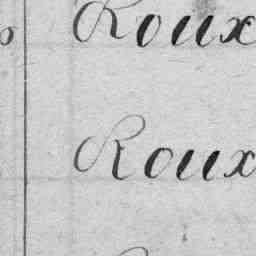 Roux
Roux